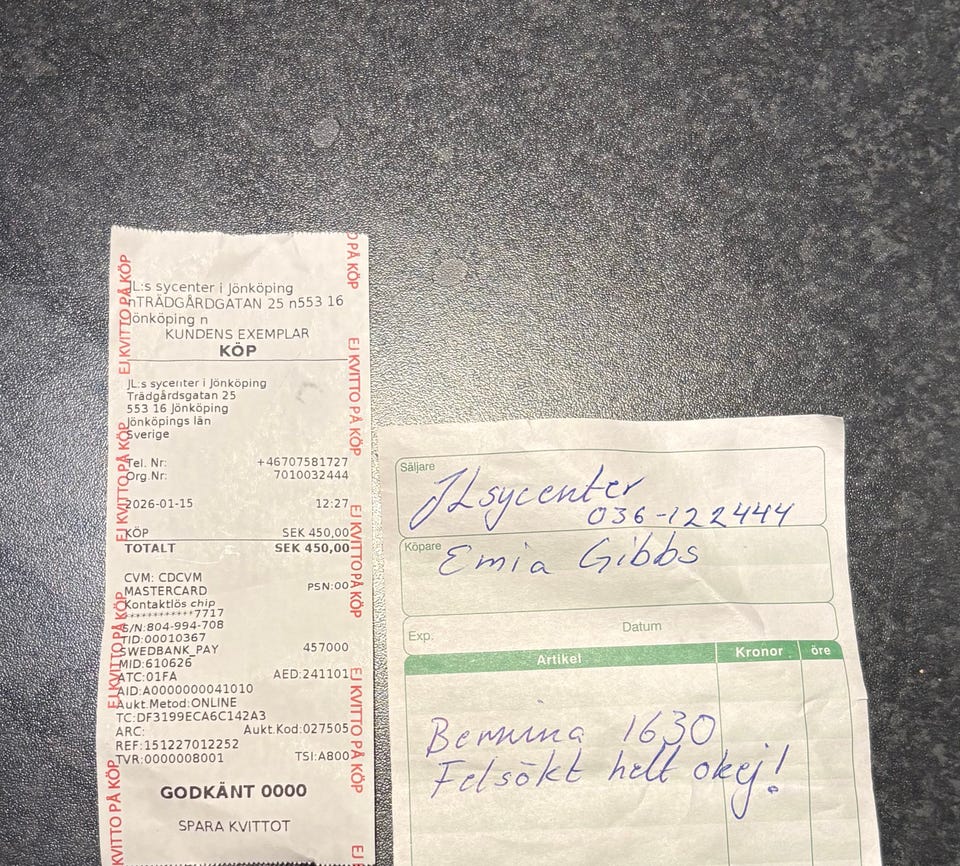 JL:s sycenter i Jönköping
nTRÄDGÅRDGATAN 25 n553 16
Jönköping n
KUNDENS EXEMPLAR
KÖP
JL:s sycenter i Jönköping
Trädgårdsgatan 25
553 16 Jönköping
Jönköpings län
Sverige
Tel. Nr: +46707581727
Org.Nr: 7010032444
2026-01-15 12:27
KÖP SEK 450,00
TOTALT SEK 450,00
CVM: CDCVM
MASTERCARD PSN:00
Kontaktlös chip
************7717
S/N:804-994-708
TID:00010367
SWEDBANK_PAY 457000
MID:610626
ATC:01FA AED:241101
AID:A0000000041010
Aukt.Metod:ONLINE
TC:DF3199ECA6C142A3
ARC: Aukt.Kod:027505
REF:151227012252
TVR:0000008001 TSI:A800
GODKÄNT 0000
SPARA KVITTOT
EJ KVITTO PÅ KÖP
EJ KVITTO PÅ KÖP
EJ KVITTO PÅ KÖP
KVITTO PÅ KÖP
PÅ KÖP
EJ KVITTO PÅ KÖP
EJ KVITTO PÅ KÖP
EJ KVITTO PÅ KÖP
EJ
Säljare
JLsycenter
036-122444
Köpare
Emia Gibbs
Exp. Datum
Artikel Kronor öre
Bernina 1630
Felsökt helt okej!